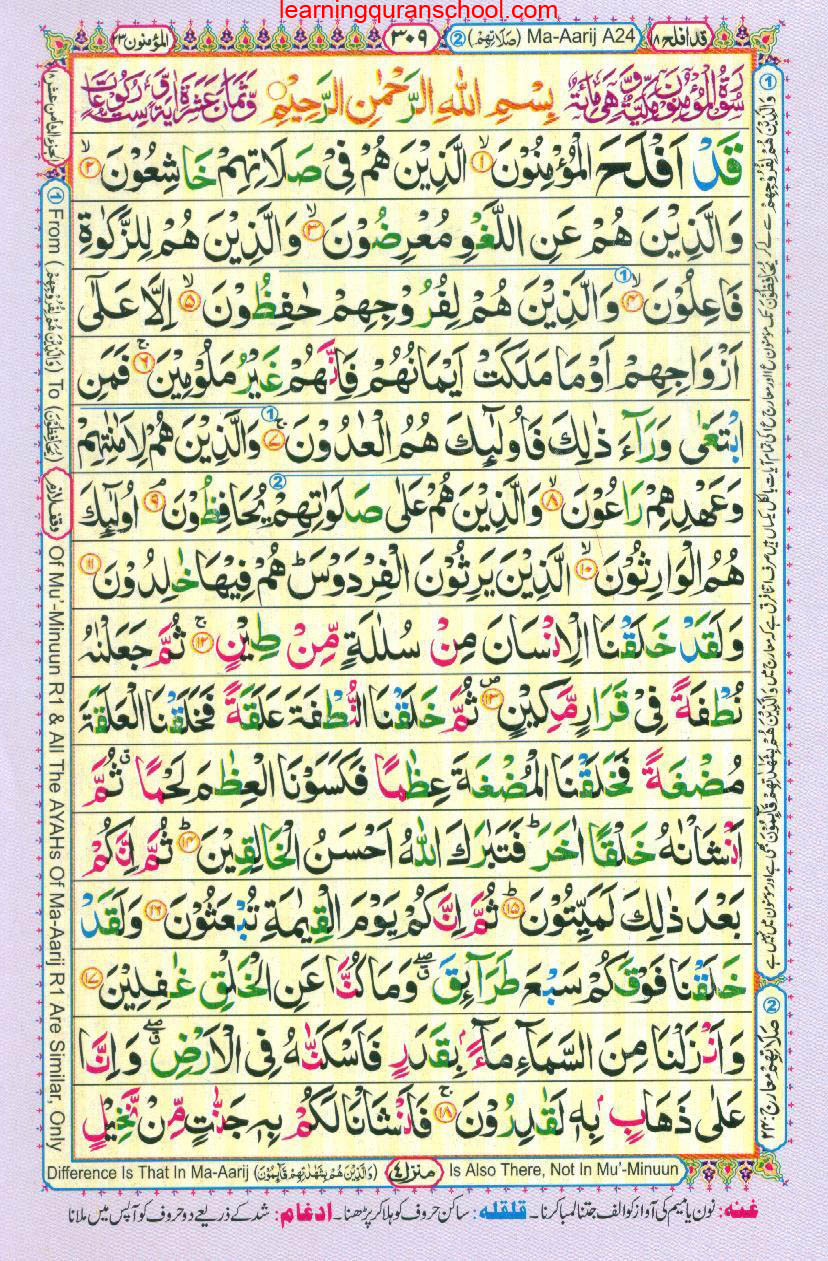 learningquranschool.com
قد افلح ۱۸
② (صَلَاتِهِمْ) Ma-Aarij A24
۳۰۹
المؤمنون ۲۳
سُوْرَةُ الْمُؤْمِنُوْنَ مَكِّيَّةٌ وَّهِيَ مِائَةٌ
بِسْمِ اللّٰهِ الرَّحْمٰنِ الرَّحِيْمِ
وَّثَمَانَ عَشْرَةَ اٰيَةً وَّسِتُّ رُكُوْعَاتٍ
قَدْ اَفْلَحَ الْمُؤْمِنُوْنَ ۙ﴿۱﴾ الَّذِيْنَ هُمْ فِيْ صَلَاتِهِمْ خَاشِعُوْنَ ۙ﴿۲﴾
وَالَّذِيْنَ هُمْ عَنِ اللَّغْوِ مُعْرِضُوْنَ ۙ﴿۳﴾ وَالَّذِيْنَ هُمْ لِلزَّكٰوةِ
فَاعِلُوْنَ ۙ﴿۴﴾ ① وَالَّذِيْنَ هُمْ لِفُرُوْجِهِمْ حٰفِظُوْنَ ۙ﴿۵﴾ اِلَّا عَلٰٓى
اَزْوَاجِهِمْ اَوْ مَا مَلَكَتْ اَيْمَانُهُمْ فَاِنَّهُمْ غَيْرُ مَلُوْمِيْنَ ۚ﴿۶﴾ فَمَنِ
ابْتَغٰى وَرَآءَ ذٰلِكَ فَاُولٰٓئِكَ هُمُ الْعٰدُوْنَ ۚ﴿۷﴾ ① وَالَّذِيْنَ هُمْ لِاَمٰنٰتِهِمْ
وَعَهْدِهِمْ رَاعُوْنَ ۙ﴿۸﴾ وَالَّذِيْنَ هُمْ عَلٰى صَلَوٰتِهِمْ ② يُحَافِظُوْنَ ۘ﴿۹﴾ اُولٰٓئِكَ
هُمُ الْوَارِثُوْنَ ۙ﴿۱۰﴾ الَّذِيْنَ يَرِثُوْنَ الْفِرْدَوْسَ ؕ هُمْ فِيْهَا خٰلِدُوْنَ ﴿۱۱﴾
وَلَقَدْ خَلَقْنَا الْاِنْسَانَ مِنْ سُلٰلَةٍ مِّنْ طِيْنٍ ۚ﴿۱۲﴾ ثُمَّ جَعَلْنٰهُ
نُطْفَةً فِيْ قَرَارٍ مَّكِيْنٍ ۪﴿۱۳﴾ ثُمَّ خَلَقْنَا النُّطْفَةَ عَلَقَةً فَخَلَقْنَا الْعَلَقَةَ
مُضْغَةً فَخَلَقْنَا الْمُضْغَةَ عِظٰمًا فَكَسَوْنَا الْعِظٰمَ لَحْمًا ۗ ثُمَّ
اَنْشَاْنٰهُ خَلْقًا اٰخَرَ ؕ فَتَبٰرَكَ اللّٰهُ اَحْسَنُ الْخَالِقِيْنَ ؕ﴿۱۴﴾ ثُمَّ اِنَّكُمْ
بَعْدَ ذٰلِكَ لَمَيِّتُوْنَ ؕ﴿۱۵﴾ ثُمَّ اِنَّكُمْ يَوْمَ الْقِيٰمَةِ تُبْعَثُوْنَ ﴿۱۶﴾ وَلَقَدْ
خَلَقْنَا فَوْقَكُمْ سَبْعَ طَرَآئِقَ ۖۗ وَمَا كُنَّا عَنِ الْخَلْقِ غٰفِلِيْنَ ﴿۱۷﴾
وَاَنْزَلْنَا مِنَ السَّمَآءِ مَآءًۢ بِقَدَرٍ فَاَسْكَنّٰهُ فِي الْاَرْضِ ۖۗ وَاِنَّا
عَلٰى ذَهَابٍۭ بِهٖ لَقٰدِرُوْنَ ۚ﴿۱۸﴾ فَاَنْشَاْنَا لَكُمْ بِهٖ جَنّٰتٍ مِّنْ نَّخِيْلٍ
② صَلَاتِهِمْ معارج: ۲۳
① From (وَالَّذِيْنَ هُمْ لِفُرُوْجِهِمْ) To (يُحَافِظُوْنَ) وقف لازم Of Mu'-Minuun R1 & All The AYAHs Of Ma-Aarij R1 Are Similar, Only
Difference Is That In Ma-Aarij (وَالَّذِيْنَ هُمْ بِشَهٰدٰتِهِمْ قَآئِمُوْنَ) منزل ۴ Is Also There, Not In Mu'-Minuun
غنه: نون یا میم کی آواز کو الف جتنا لمبا کرنا۔ قلقله: ساکن حروف کو ہلا کر پڑھنا۔ ادغام: شد کے ذریعے دو حروف کو آپس میں ملانا